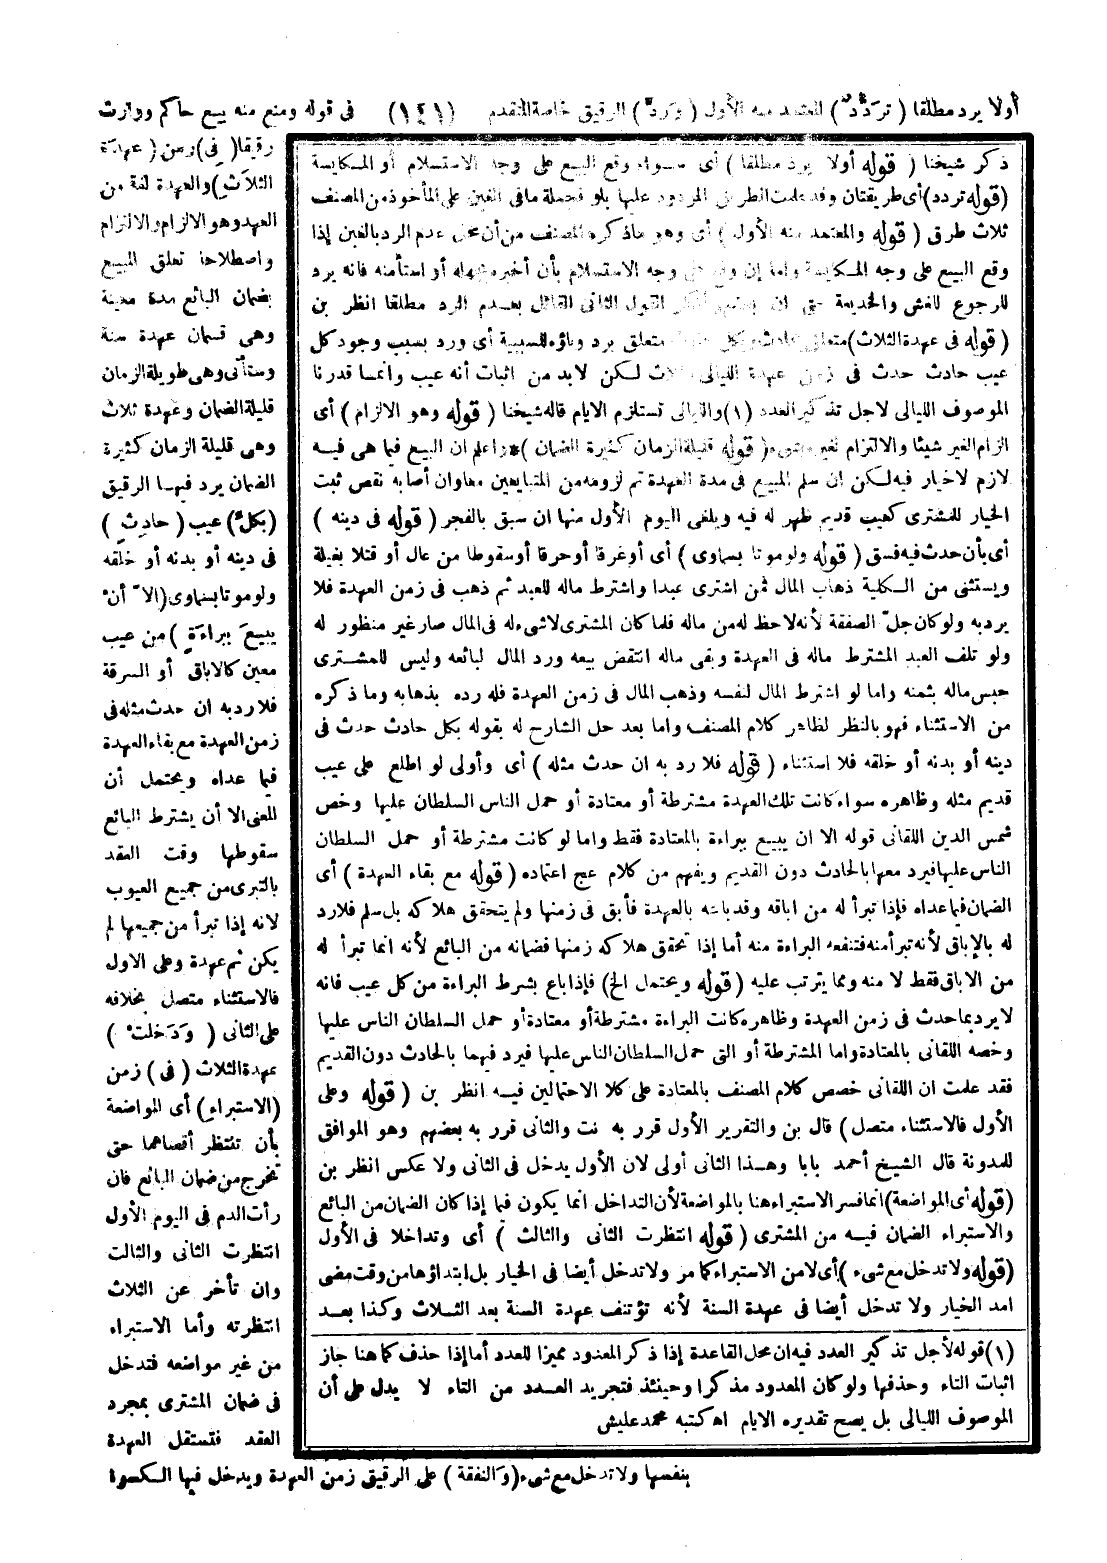 أولا يرد مطلقا (تردد) المعتمد منه الأول (ورد) الرقيق خاصة المتقدم (١٤١) فى قوله ومنع منه بيع حاكم ووارث
رقيقا (فى) زمن (عهدة
الثلاث) والعهدة لغة من
العهد وهو الالزام والالتزام
واصطلاحا تعلق المبيع
بضمان البائع مدة معينة
وهى قسمان عهدة سنة
وستأتى وهى طويلة الزمان
قليلة الضمان وعهدة ثلاث
وهى قليلة الزمان كثيرة
الضمان يرد فيها الرقيق
(بكل) عيب (حادث)
فى دينه أو بدنه أو خلقه
ولو موتا بسماوى (الا أن
يبيع ببراءة) من عيب
معين كالاباق أو السرقة
فلا رد به ان حدث مثله فى
زمن العهدة مع بقاء العهدة
فيما عداه ويحتمل أن
المعنى الا أن يشترط البائع
سقوطها وقت العقد
بالتبرى من جميع العيوب
لانه إذا تبرأ من جميعها لم
يكن ثم عهدة وعلى الاول
فالاستثناء متصل بخلافه
على الثانى (ودخلت)
عهدة الثلاث (فى) زمن
(الاستبراء) أى المواضعة
بأن تنتظر أقصاهما حتى
تخرج من ضمان البائع فان
رأت الدم فى اليوم الأول
انتظرت الثانى والثالث
وان تأخر عن الثلاث
انتظرته وأما الاستبراء
من غير مواضعه فتدخل
فى ضمان المشترى بمجرد
العقد فتستقل العهدة
بنفسها ولا تدخل مع شىء (والنفقة) على الرقيق زمن العهدة ويدخل فيها الكسوة
ذكر شيخنا (قوله أولا يرد مطلقا) أى سواء وقع البيع على وجه الاستسلام أو المكايسة
(قوله تردد) أى طريقتان وقد علمت الطرق المردود عليها بلو فجملة مافى الغبن على المأخوذ من المصنف
ثلاث طرق (قوله والمعتمد منه الأول) أى وهو ماذكره المصنف من أن محل عدم الرد بالغبن إذا
وقع البيع على وجه المكايسة وأما إن وقع على وجه الاستسلام بأن أخبره بجهله أو استأمنه فانه يرد
للرجوع للغش والخديعة حتى ان القول الثانى القائل بعدم الرد مطلقا انظر بن
(قوله فى عهدة الثلاث) متعلق بحادث وبكل متعلق برد وباؤه للسببية أى ورد بسبب وجود كل
عيب حادث حدث فى زمن عهدة الليالى الثلاث لكن لابد من اثبات أنه عيب وانما قدرنا
الموصوف الليالى لاجل تذكير العدد (١) والليالى تستلزم الايام قاله شيخنا (قوله وهو الالزام) أى
الزام الغير شيئا والالتزام لغيره بشىء (قوله قليلة الزمان كثيرة الضمان) * واعلم ان البيع فيما هى فيه
لازم لاخيار فيه لكن ان سلم المبيع فى مدة العهدة تم لزومه من المتبايعين معا وان أصابه نقص ثبت
الخيار للمشترى كعيب قديم ظهر له فيه ويلغى اليوم الأول منها ان سبق بالفجر (قوله فى دينه)
أى بأن حدث فيه فسق (قوله ولو موتا بسماوى) أى أو غرقا أو حرقا أو سقوطا من عال أو قتلا بغيلة
ويستثنى من الكلية ذهاب المال فمن اشترى عبدا واشترط ماله للعبد ثم ذهب فى زمن العهدة فلا
يرد به ولو كان جل الصفقة لأنه لاحظ له من ماله فلما كان المشترى لاشىء له فى المال صار غير منظور له
ولو تلف العبد المشترط ماله فى العهدة وبقى ماله انتقض بيعه ورد المال لبائعه وليس للمشترى
حبس ماله بثمنه واما لو اشترط المال لنفسه وذهب المال فى زمن العهدة فله رده بذهابه وما ذكره
من الاستثناء فهو بالنظر لظاهر كلام المصنف واما بعد حل الشارح له بقوله بكل حادث حدث فى
دينه أو بدنه أو خلقه فلا استثناء (قوله فلا رد به ان حدث مثله) أى وأولى لو اطلع على عيب
قديم مثله وظاهره سواء كانت تلك العهدة مشترطة أو معتادة أو حمل الناس السلطان عليها وخص
شمس الدين اللقانى قوله الا ان يبيع ببراءة بالمعتادة فقط واما لو كانت مشترطة أو حمل السلطان
الناس عليها فيرد معها بالحادث دون القديم ويفهم من كلام عج اعتماده (قوله مع بقاء العهدة) أى
الضمان فيما عداه فإذا تبرأ له من اباقه وقد باعه بالعهدة فأبق فى زمنها ولم يتحقق هلاكه بل سلم فلا رد
له بالإباق لأنه تبرأ منه فتنفعه البراءة منه أما إذا تحقق هلاكه زمنها فضمانه من البائع لأنه انما تبرأ له
من الاباق فقط لا منه ومما يترتب عليه (قوله ويحتمل الخ) فإذا باع بشرط البراءة من كل عيب فانه
لا يرد بما حدث فى زمن العهدة وظاهره كانت البراءة مشترطة أو معتادة أو حمل السلطان الناس عليها
وخصه اللقانى بالمعتادة واما المشترطة أو التى حمل السلطان الناس عليها فيرد فيهما بالحادث دون القديم
فقد علمت ان اللقانى خصص كلام المصنف بالمعتادة على كلا الاحتمالين فيه انظر بن (قوله وعلى
الأول فالاستثناء متصل) قال بن والتقرير الأول قرر به تت والثانى قرر به بعضهم وهو الموافق
للمدونة قال الشيخ أحمد بابا وهذا الثانى أولى لان الأول يدخل فى الثانى ولا عكس انظر بن
(قوله أى المواضعة) انما فسر الاستبراء هنا بالمواضعة لأن التداخل انما يكون فيما إذا كان الضمان من البائع
والاستبراء الضمان فيه من المشترى (قوله انتظرت الثانى والثالث) أى وتداخلا فى الأول
(قوله ولا تدخل مع شىء) أى لا من الاستبراء كما مر ولا تدخل أيضا فى الخيار بل ابتداؤها من وقت مضى
امد الخيار ولا تدخل أيضا فى عهدة السنة لأنه تؤتنف عهدة السنة بعد الثلاث وكذا بعد
(١) قوله لأجل تذكير العدد فيه ان محل القاعدة إذا ذكر المعدود مميزا للعدد أما إذا حذف كما هنا جاز
اثبات التاء وحذفها ولو كان المعدود مذكرا وحينئذ فتجريد العدد من التاء لا يدل على أن
الموصوف الليالى بل يصح تقديره الايام اه كتبه محمد عليش